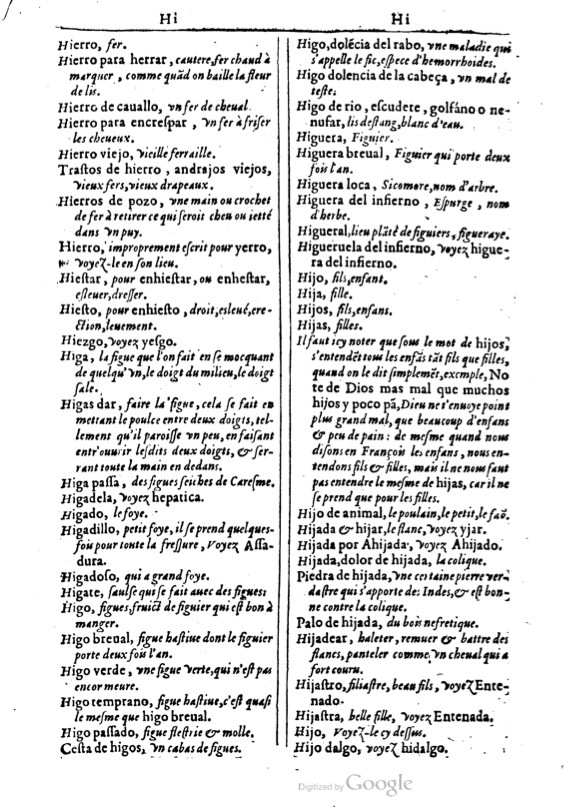 Hi
Hierro, fer.
Hierro para herrar, cautere, fer chaud à
marquer, comme quãd on baille la fleur
de lis.
Hierro de cauallo, vn fer de cheual.
Hierro para encreſpar, vn fer à friſer
les cheueux.
Hierro viejo, vieille ferraille.
Traſtos de hierro, andrajos viejos,
vieux fers, vieux drapeaux.
Hierros de pozo, vne main ou crochet
de fer à retirer ce qui ſeroit cheu ou ietté
dans vn puy.
Hierro, improprement eſcrit pour yerro,
voyez-le en ſon lieu.
Hieſtar, pour enhieſtar, ou enheſtar,
eſleuer, dreſſer.
Hieſto, pour enhieſto, droit, esleué, ere-
ction, leuement.
Hiezgo, voyez yeſgo.
Higa, la figue que l'on fait en ſe mocquant
de quelqu'vn, le doigt du milieu, le doigt
ſale.
Higas dar, faire la figue, cela ſe fait en
mettant le poulce entre deux doigts, tel-
lement qu'il paroiſſe vn peu, en faiſant
entr'ouurir leſdits deux doigts, & ſer-
rant toute la main en dedans.
Higa paſſa, des figues ſeiches de Careſme.
Higadela, voyez hepatica.
Higado, le foye.
Higadillo, petit foye, il ſe prend quelques-
fois pour toute la freſſure, voyez Aſſa-
dura.
Higadoſo, qui a grand foye.
Higate, ſaulſe qui ſe fait auec des figues:
Higo, figues, fruict de figuier qui eſt bon à
manger.
Higo breual, figue haſtiue dont le figuier
porte deux fois l'an.
Higo verde, vne figue verte, qui n'eſt pas
encor meure.
Higo temprano, figue haſtiue, c'eſt quaſi
le meſme que higo breual.
Higo paſſado, figue fleſtrie & molle.
Ceſta de higos, vn cabas de figues.
Hi
Higo, dolécia del rabo, vne maladie qui
s'appelle le fic, eſpece d'hemorrhoides.
Higo dolencia de la cabeça, vn mal de
teſte:
Higo de rio, eſcudete, golfáno o ne-
nufar, lis d'eſtang, blanc d'eau.
Higuera, Figuier.
Higuera breual, Figuier qui porte deux
fois l'an.
Higuera loca, Sicomore, nom d'arbre.
Higuera del infierno, Eſpurge, nom
d'herbe.
Higueral, lieu plãté de figuiers, figueraye.
Higueruela del infierno, voyez higue-
ra del infierno.
Hijo, fils, enfant.
Hija, fille.
Hijos, fils, enfans.
Hijas, filles.
Il faut icy noter que ſous le mot de hijos,
s'entendẽt tous les enfãs tãt fils que filles,
quand on le dit ſimplemẽt, exemple, No
te de Dios mas mal que muchos
hijos y poco pã, Dieu ne t'enuoye point
plus grand mal, que beaucoup d'enfans
& peu de pain: de meſme quand nous
diſons en François les enfans, nous en-
tendons fils & filles, mais il ne nous faut
pas entendre le meſme de hijas, car il ne
ſe prend que pour les filles.
Hijo de animal, le poulain, le petit, le faõ.
Hijada & hijar, le flanc, voyez yjar.
Hijada por Ahijada, voyez Ahijado.
Hijada, dolor de hijada, la colique.
Piedra de hijada, vne certaine pierre ver-
daſtre qui s'apporte des Indes, & eſt bon-
ne contre la colique.
Palo de hijada, du bois nefretique.
Hijadear, haleter, remuer & battre des
flancs, panteler comme vn cheual qui a
fort couru.
Hijaſtro, filiaſtre, beau fils, voyez Ente-
nado.
Hijaſtra, belle fille, voyez Entenada.
Hijo, Voyez-le cy deſſus.
Hijo dalgo, voyez hidalgo.
Digitized by Google